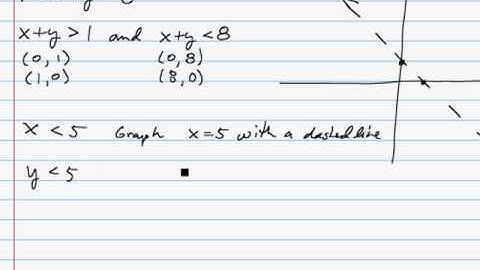 x+y > 1 and x+y < 8
(0,1) (0,8)
(1,0) (8,0)
x < 5 Graph x=5 with a dashed line
y < 5